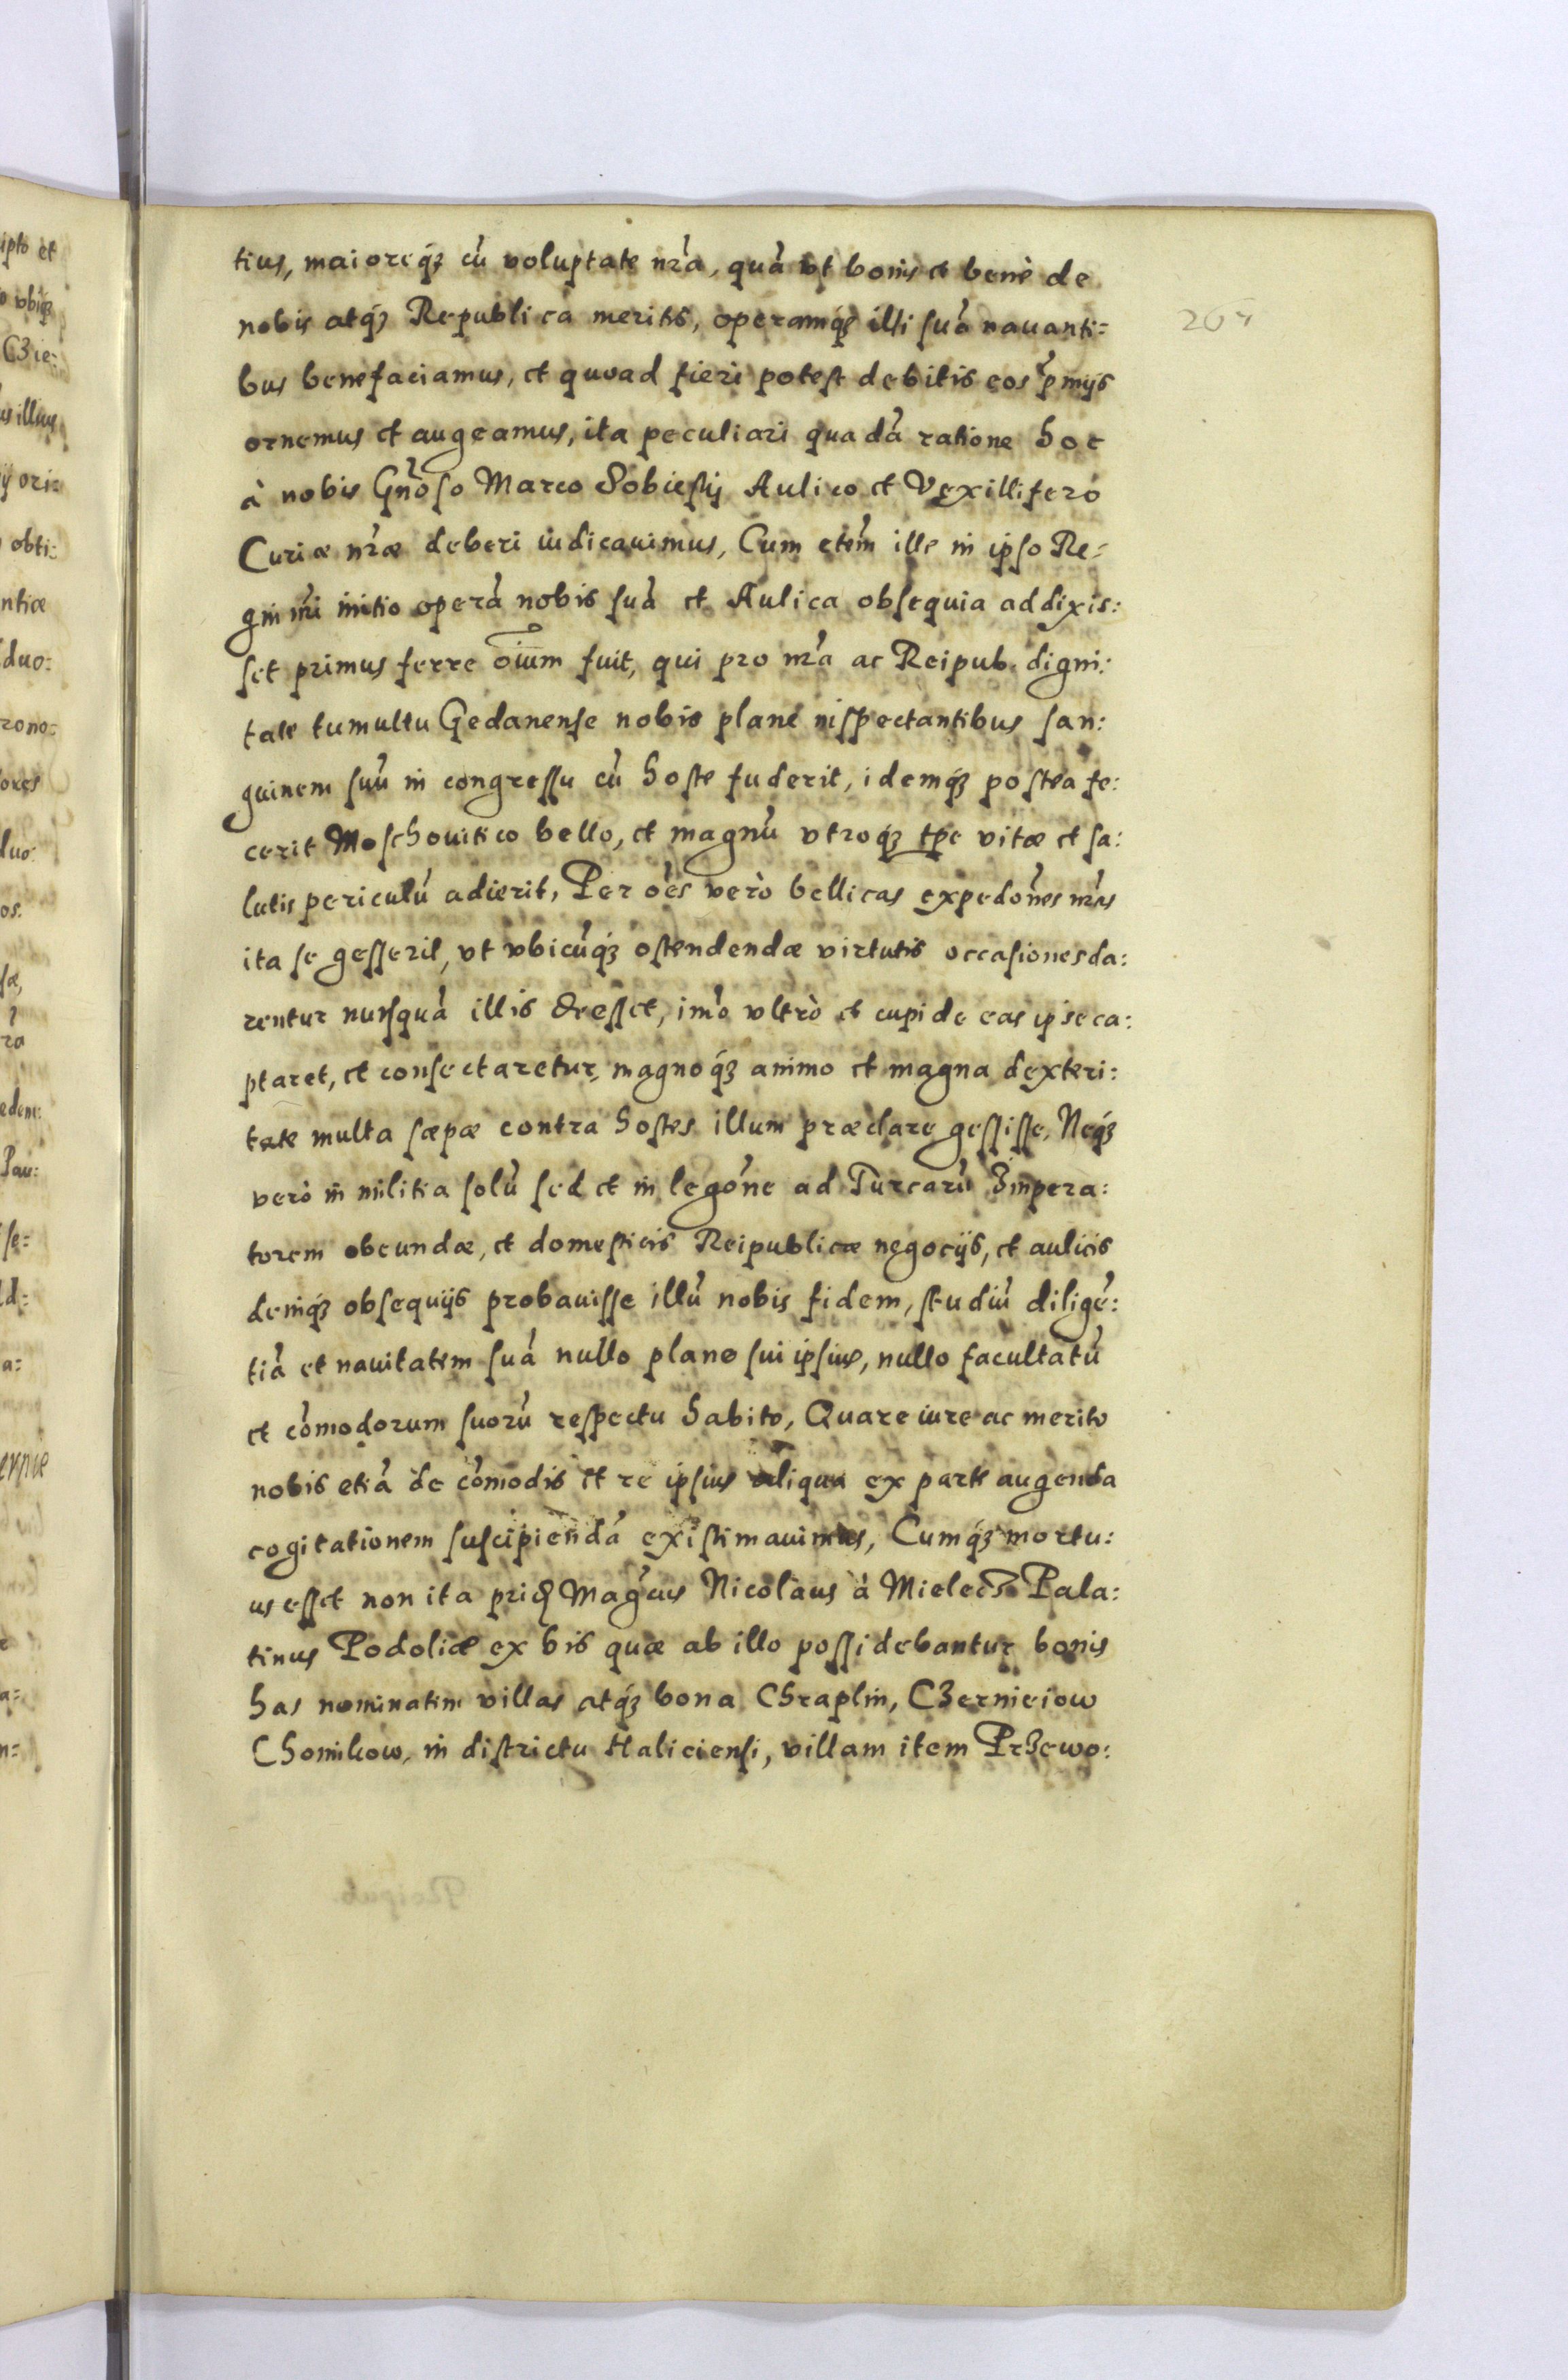 tius, maioreq́ꝫ cū voluptate nr̄a, quā vt bonis et benè de
nobis atq́ꝫ Republica meritis, operamq́ꝫ illi suā nauanti=
bus benefaciamus, et quoad fieri potest debitis eos p̄mijs
ornemus et augeamus, ita peculiari quadā ratione hoc
à nobis Gn̄oso Marco Sobieskij Aulico et Vexillifero
Curiæ nr̄æ deberi iudicauimus, Cum etem̄ ille in ipso Re=
gni nr̄i initio operā nobis suā et Aulica obsequia addixis:
set primus ferre oīum fuit, qui pro nr̄a ac Reipub. digni:
tate tumultu Gedanense nobis planè inspectantibus san:
guinem suū in congressu cū hoste fuderit, idemq́ꝫ postea fe:
cerit Moschouitico bello, et magnū vtroq́ꝫ tp̄e vitæ et sa:
lutis periculū adierit, Per oēs verò bellicas expedōnes nr̄as
ita se gesserit, vt vbicūq́ꝫ ostendendæ virtutis occasiones da:
rentur nunsquā illis deesset, imō vltrò et cupide eas ipse ca:
ptaret, et consectaretur, magnoq́ꝫ animo et magna dexteri:
tate multa sæpæ contra hostes illum præclare gessisse, Neq́ꝫ
verò in militia solū sed et in legōne ad Turcarū Impera:
torem obeundæ, et domesticis Reipublicæ negocijs, et aulicis
deniq́ꝫ obsequijs probauisse illū nobis fidem, studiū diligē:
tiā et nauitatem suā nullo plane sui ipsius, nullo facultatū
et cōmodorum suorū respectu habito, Quare iure ac merito
nobis etiā de cōmodis et re ipsius aliqua ex parte augenda
cogitationem suscipiendā existimauimus, Cumq́ꝫ mortu:
us esset non ita prid Mag̃cus Nicolaus à Mielecz Pala:
tinus Podoliæ ex his quæ ab illo possidebantur bonis
has nominatim villas atq́ꝫ bona Chraplin, Czernieiow
Chomikow, in districtu Haliciensi, villam item Przewo: